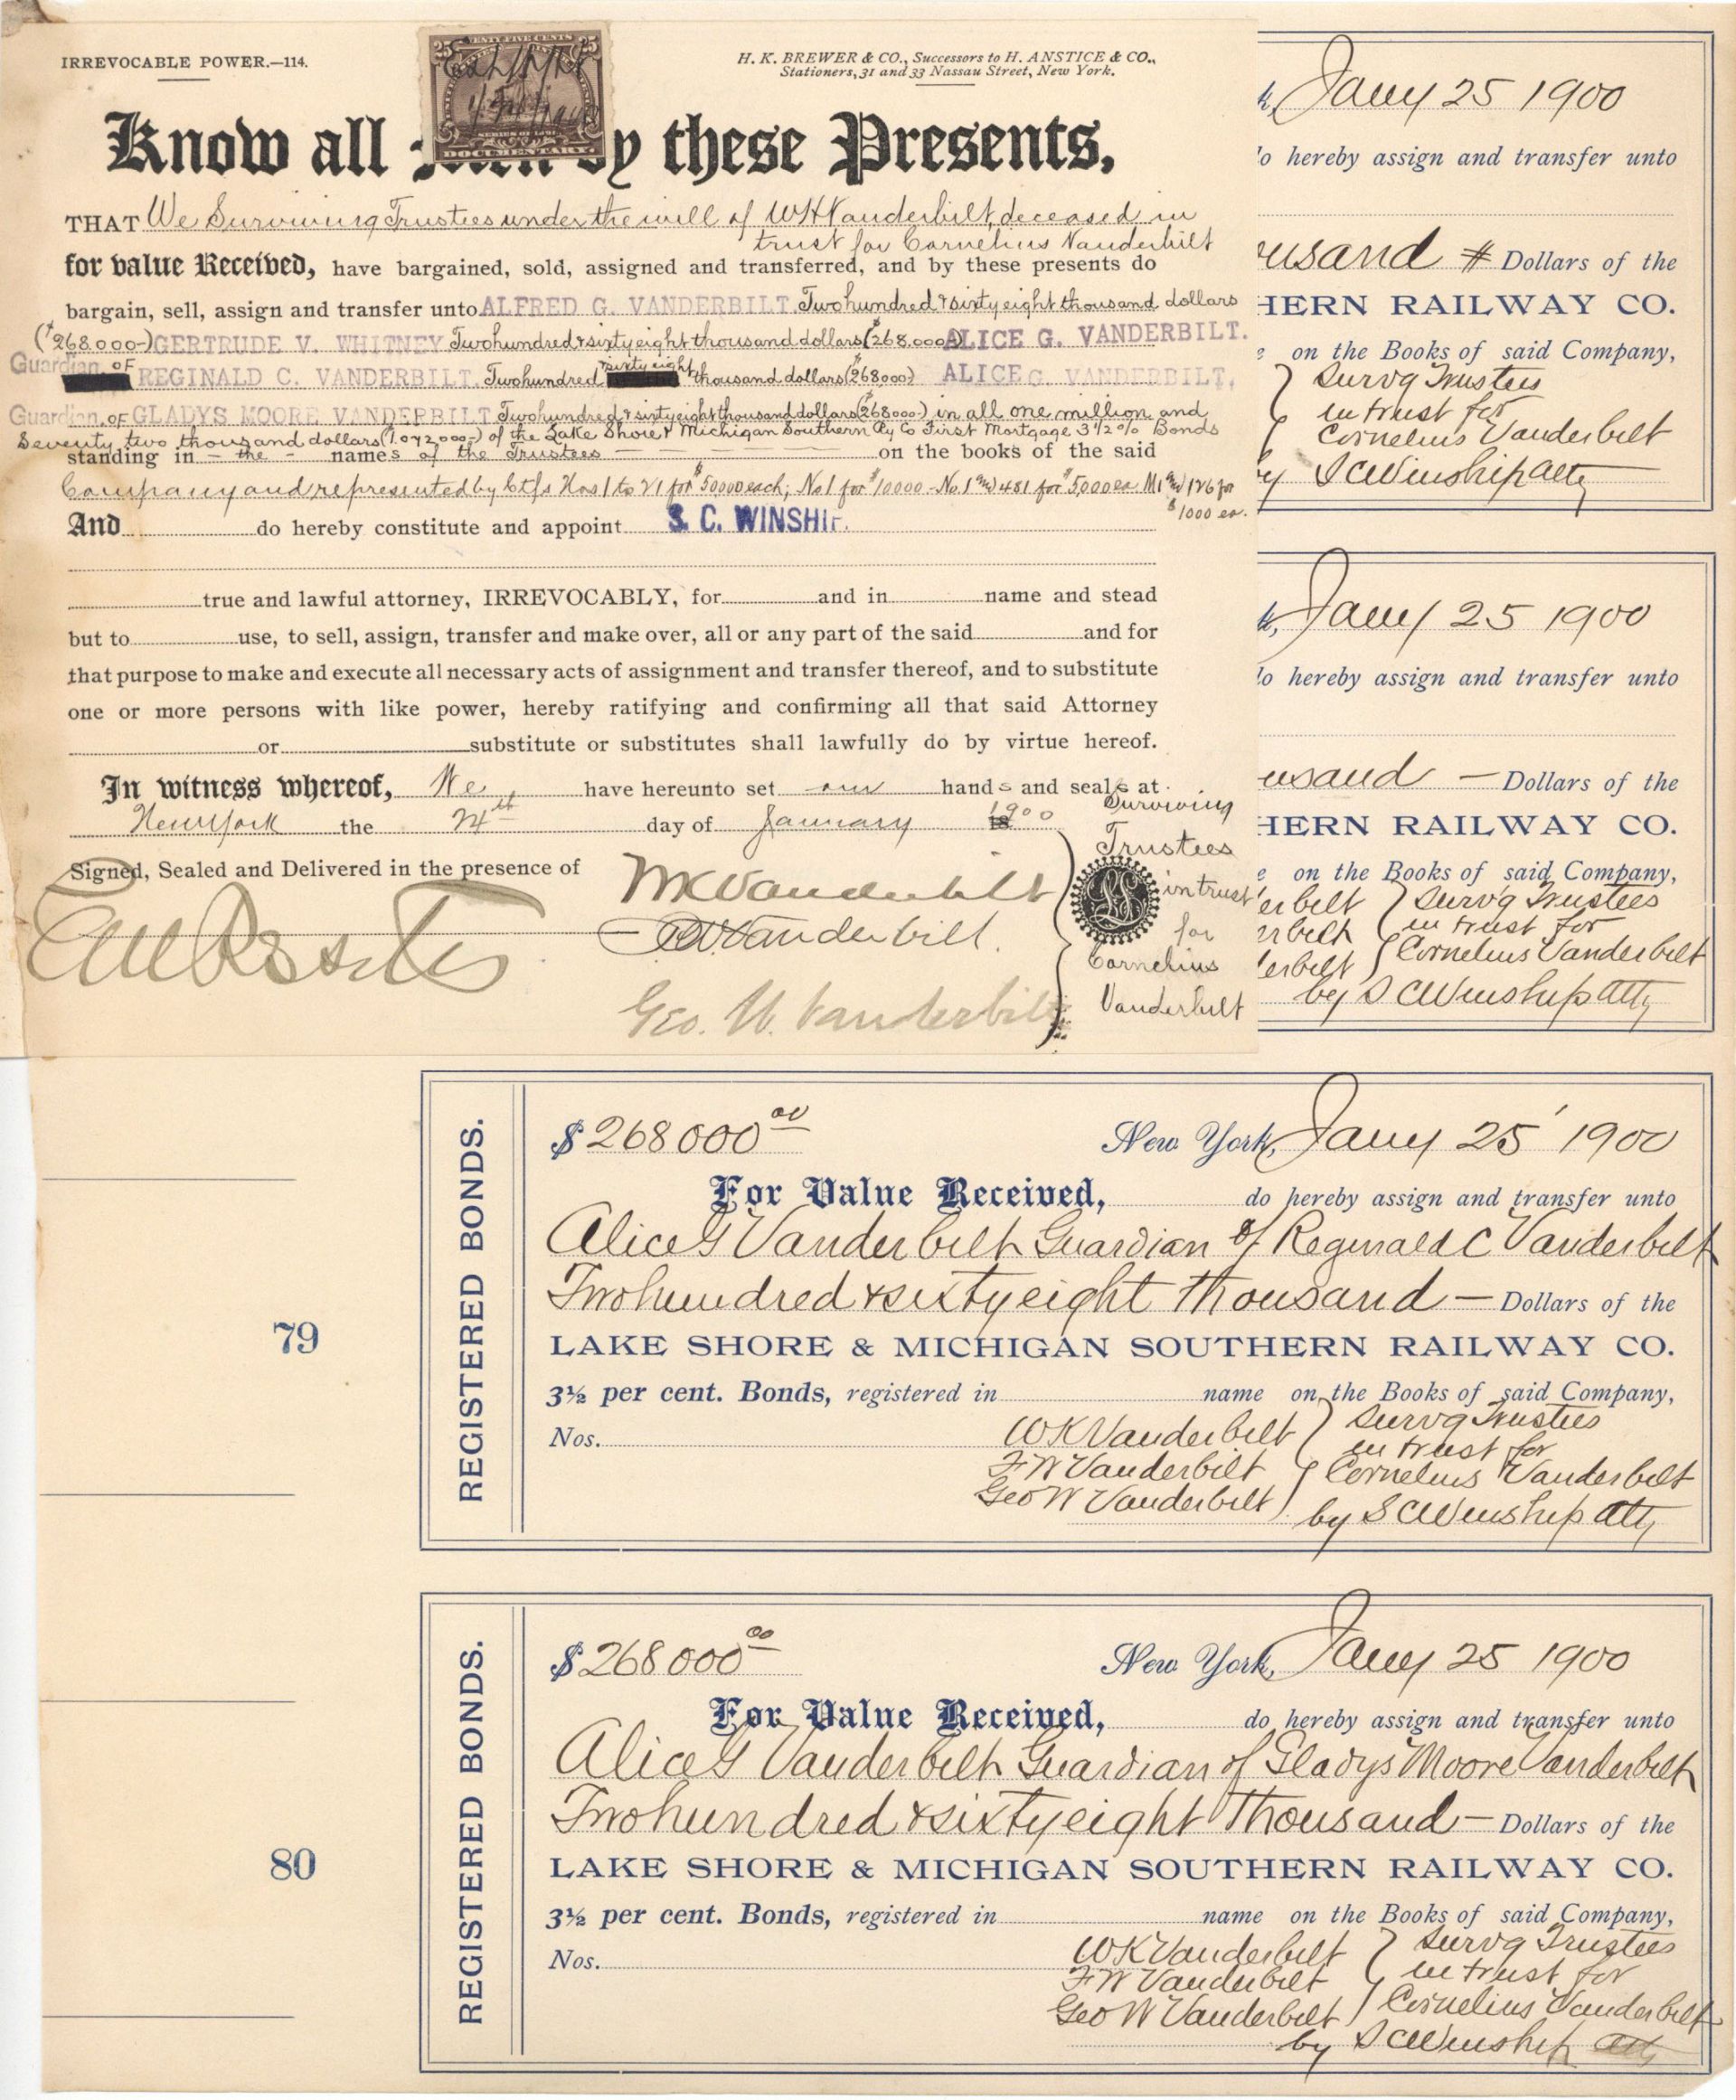 IRREVOCABLE POWER.—114.
H. K. BREWER & CO., Successors to H. ANSTICE & CO.,
Stationers, 31 and 33 Nassau Street, New York.
TWENTY FIVE CENTS
25 25
DOCUMENTARY
Know all men by these Presents,
THAT We Surviving Trustees under the will of WH Vanderbilt, deceased in
trust for Cornelius Vanderbilt
for value Received, have bargained, sold, assigned and transferred, and by these presents do
bargain, sell, assign and transfer unto ALFRED G. VANDERBILT. Two hundred & sixty eight thousand dollars
($268.000-) GERTRUDE V. WHITNEY Two hundred & sixty eight thousand dollars ($268.000) ALICE G. VANDERBILT.
Guardian OF REGINALD C. VANDERBILT. Two hundred sixty eight thousand dollars ($268000) ALICE G. VANDERBILT.
Guardian OF GLADYS MOORE VANDERBILT Two hundred & sixty eight thousand dollars ($268000-) in all one million and
Seventy two thousand dollars (1.072,000-) of the Lake Shore & Michigan Southern Ry Co First Mortgage 3½% Bonds
standing in - the - names of the Trustees on the books of the said
Company and represented by Ctfs Nos 1 to 21 for $50000 each; No 1 for $10000 - No. 1 and 481 for $5000 ea. M1 and 126 for
$1000 ea.
And do hereby constitute and appoint S. C. WINSHIP.
true and lawful attorney, IRREVOCABLY, for and in name and stead
but to use, to sell, assign, transfer and make over, all or any part of the said and for
that purpose to make and execute all necessary acts of assignment and transfer thereof, and to substitute
one or more persons with like power, hereby ratifying and confirming all that said Attorney
or substitute or substitutes shall lawfully do by virtue hereof.
In witness whereof, We have hereunto set our hands and seals at
New York the 24th day of January 1900
Surviving
Trustees
in trust
for
Cornelius
Vanderbilt
Signed, Sealed and Delivered in the presence of
WK Vanderbilt
FW Vanderbilt.
Geo. W. Vanderbilt
LS
k, Jany 25 1900
do hereby assign and transfer unto
usand # Dollars of the
HERN RAILWAY CO.
e on the Books of said Company,
Survg Trustees
in trust for
Cornelius Vanderbilt
by S C Winship atty
k, Jany 25 1900
do hereby assign and transfer unto
usand — Dollars of the
HERN RAILWAY CO.
e on the Books of said Company,
erbilt Survg Trustees
erbilt in trust for
erbilt Cornelius Vanderbilt
by S C Winship atty
79
REGISTERED BONDS.
$268000 00 New York, Jany 25 1900
For Value Received, do hereby assign and transfer unto
Alice G Vanderbilt Guardian of Reginald C Vanderbilt
Two hundred & sixty eight thousand — Dollars of the
LAKE SHORE & MICHIGAN SOUTHERN RAILWAY CO.
3½ per cent. Bonds, registered in name on the Books of said Company,
Nos. WK Vanderbilt Survg Trustees
FW Vanderbilt in trust for
Geo W Vanderbilt Cornelius Vanderbilt
by S C Winship atty
80
REGISTERED BONDS.
$268000 00 New York, Jany 25 1900
For Value Received, do hereby assign and transfer unto
Alice G Vanderbilt Guardian of Gladys Moore Vanderbilt
Two hundred & sixty eight thousand — Dollars of the
LAKE SHORE & MICHIGAN SOUTHERN RAILWAY CO.
3½ per cent. Bonds, registered in name on the Books of said Company,
Nos. WK Vanderbilt Survg Trustees
FW Vanderbilt in trust for
Geo W Vanderbilt Cornelius Vanderbilt
by S C Winship atty